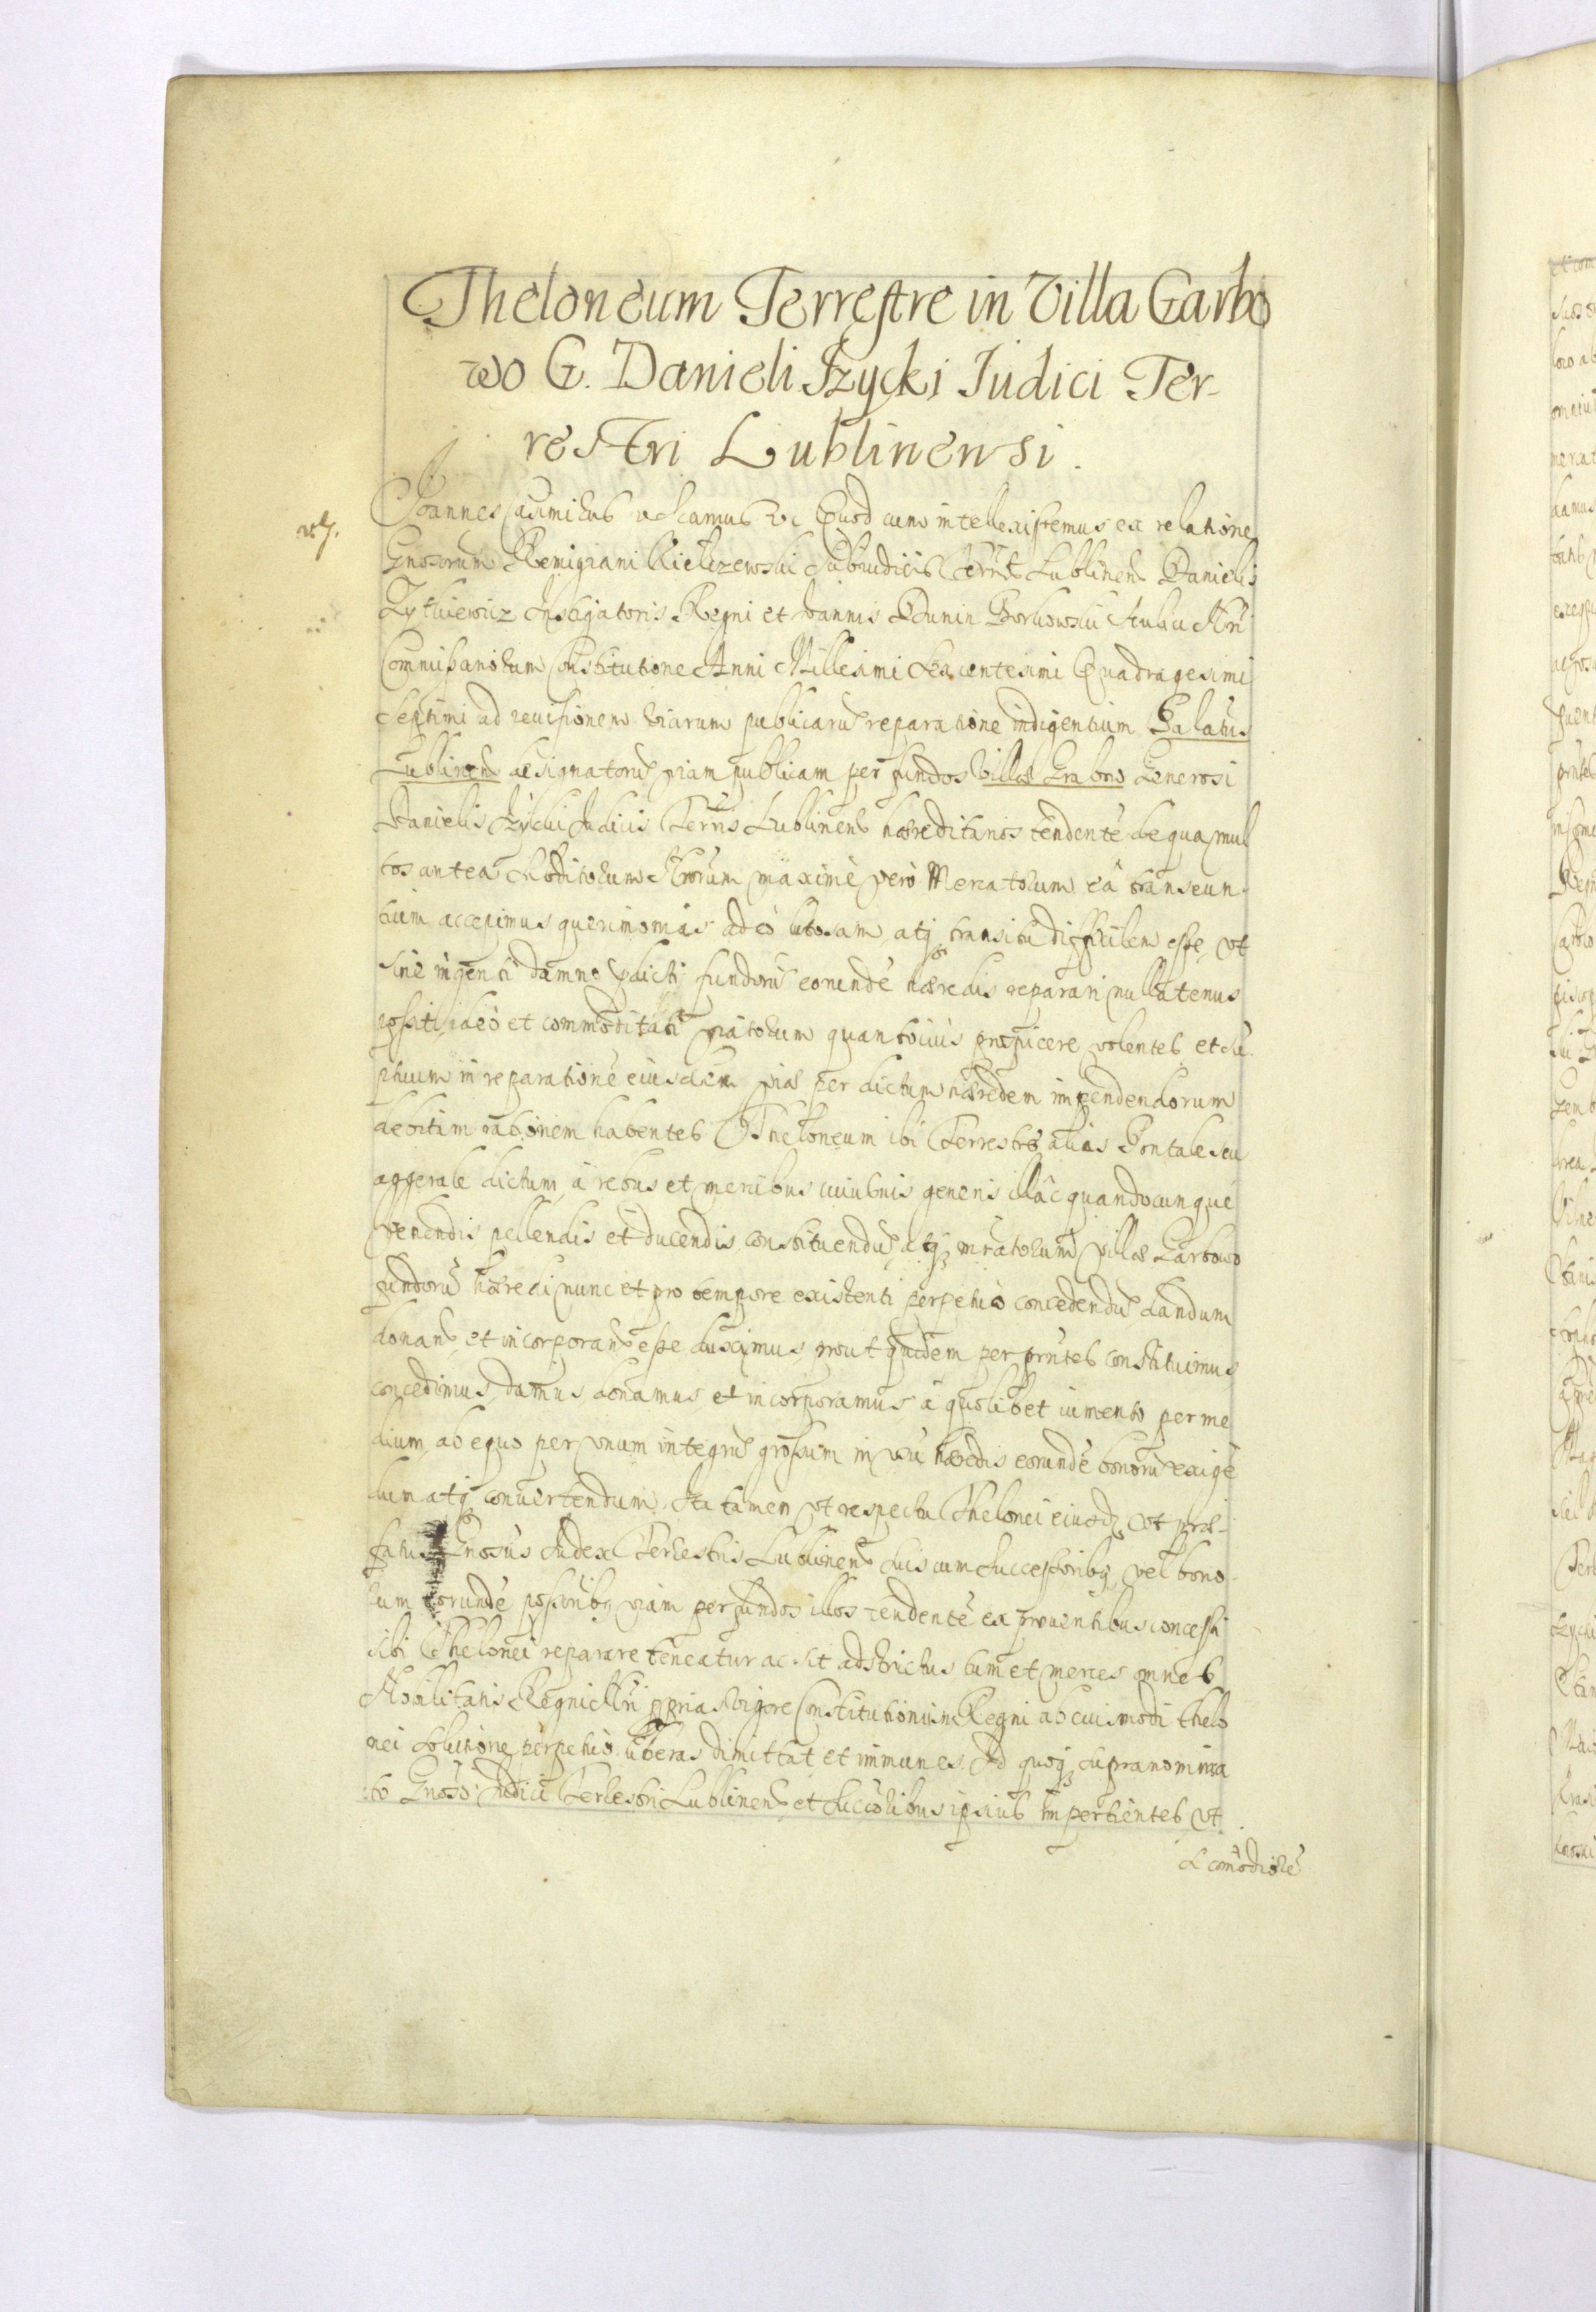 Theloneum Terrestre in Villa Garbo
wo G. Danieli Jzycki Judici Ter-
restri Lublinensi.
Joannes Casimirus Quod cum intellexissemus ex relatione
Gnosorum Remigiani Subiudicis Terrs Lublinens Danielis
Zytkiewicz Instigatoris Regni et Joannis Dunin Borkowski Aulici Nri
Commissariorum Constitutione Anni Millesimi Sexcentesimi Quadragesimi
Septimi ad reuisionem viarum publicarũ reparatione indigentium Palatus
Lublinens designatorũ viam publicam per fundos Villæ Grabow Generosi
Danielis Jzycki Judicis Terris Lublinens hæreditarios tendentẽ de qua mul
tos antea Subditorum Nrorum maximè verò Mercatorum eâ transeun
tium accepimus querimonias adeò lutosam atq transitu difficilem esse, vt
sine ingenti damno fundorũ eorundẽ hæredis reparari nullatenus
possit, ideò et commoditati viatorum quantocius prospicere volentes et sũ
ptuum in reparationẽ eiusdem viæ per dictum hæredem impendendorum
debitam rationem habentes Theloneum ibi Terrestre alias Pontale seu
aggerale dictum, à rebus et mercibus cuiusuis generis illâc quandocunque
vehendis pellendis et ducendis, constituendũ atq villæ Garbowo
fundorũ hæredi nunc et pro tempore existenti perpetuò concedendũ dandum
donand et incorporand esse duximus, prout quidem per prntes constituimus
concedimus, damus, donamus et incorporamus à quolibet iumento per me
dium, ab equo per vnum integrũ grossum in vsũ hæredis eorundẽ bonorũ exigẽ
dum atq conuertendum. Ita tamen vt respectu Thelonei eiusd, vt præ-
fatus Gnosus Judex Terrestris Lublinens suis cum Successoribq vel bono-
rum eorundẽ possoribq viam per fundos illos tendentẽ ex prouentibus concessi
sibi Thelonei reparare teneatur ac sit adstrictus tum et merces omnes
Nobilitatis Regni Nri proprias vigore Constitutionum Regni ab eiusmodi thelo
nei solutione perpetuò liberas dimittat et immunes. Id quoq supranomina
to Gnoso Judici Terrestri Lublinens et succoribus ipsius impertientes vt
comodiorẽ